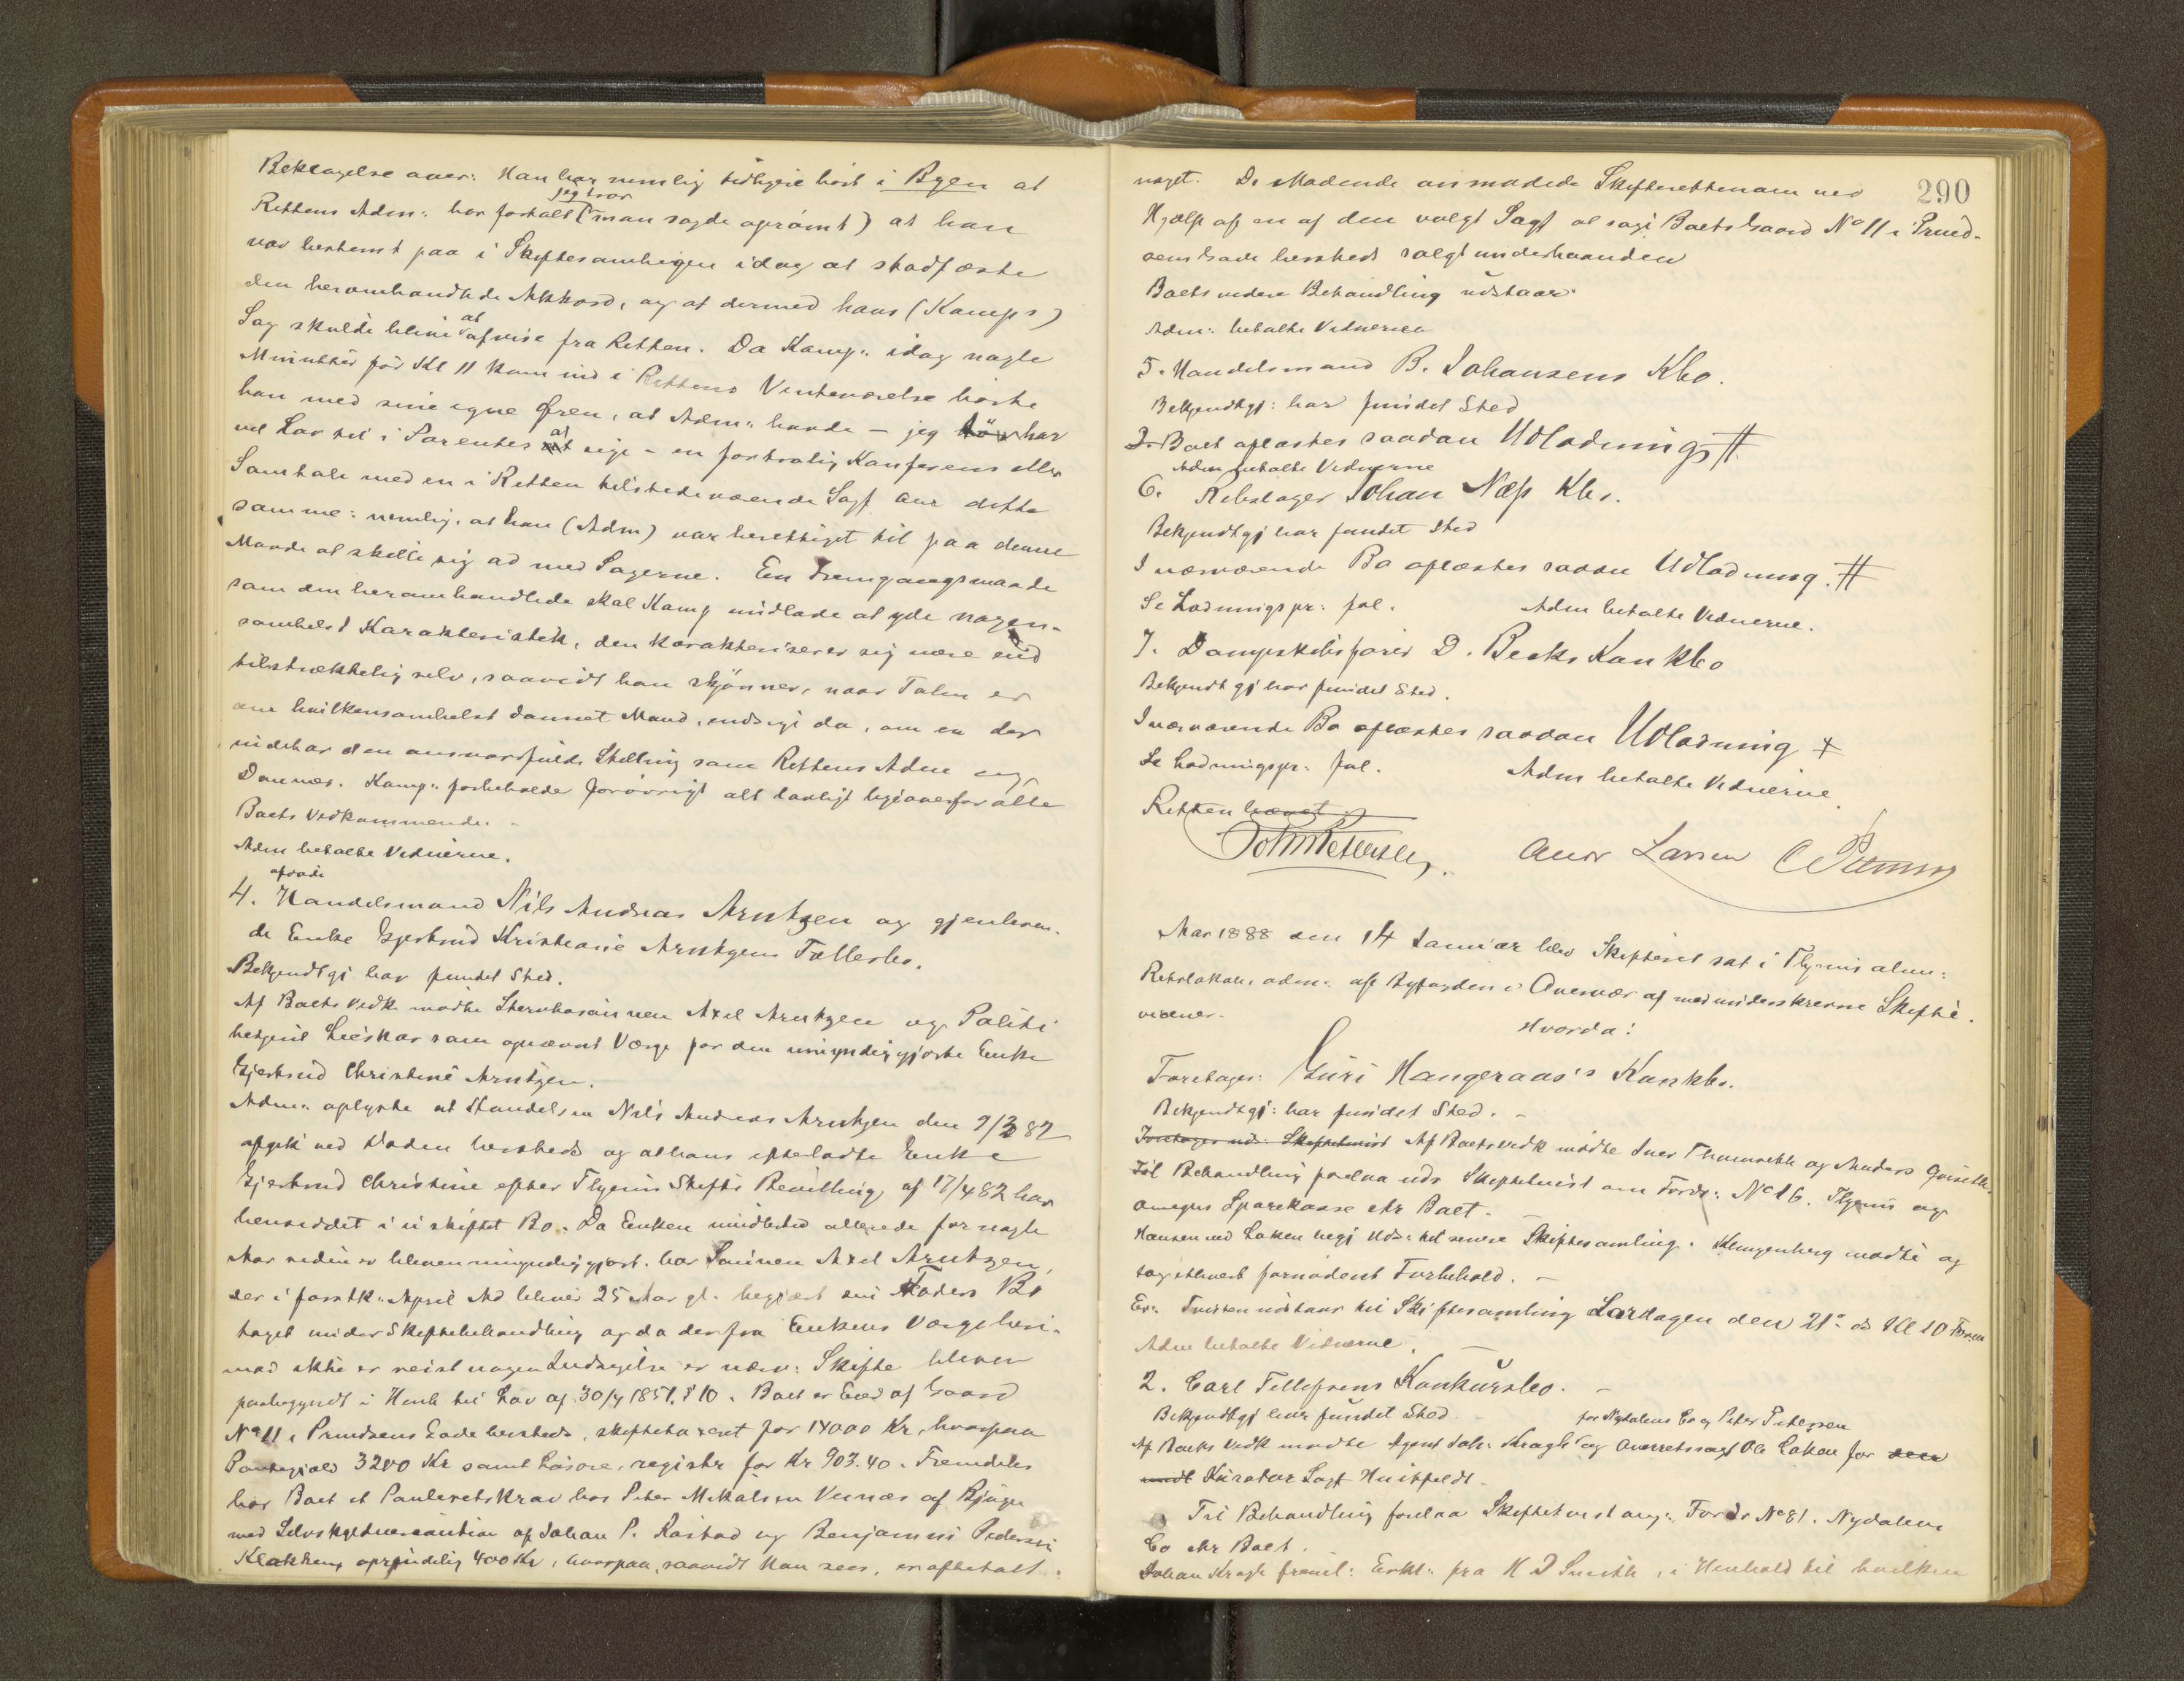 Beklagelse over: Han har nemlig tidligere hört i Byen at
jeg tror
Rettens Adm: har fortalt (man sagde oprömt) at han
var bestemt paa i Skiftesamlingen idag at stadfæste
den heromhandlede Akkord, og at dermed hans (Kamps)
Sag skulde blive at afvise fra Retten. Da Kamp: idag nogle
Minutter för Kl 11 kom ind i Rettens Venteværelse hörte
han med sine egne Ören, at Adm: havde – jeg har
vel Lov til i Parentes at sige – en fortrolig Konferens eller
Samtale med en i Retten tilstedeværende Sagf. over dette
samme: nemlig, at han (Adm) var berettiget til paa denne
Maade at skille sig ad med Sagerne. En Fremgangsmaade
som den heromhandlede skal Kamp undlade at yde nogen-
somhelst Karakteristik, den karakteriserer sig mere end
tilstrækkelig selv, saavidt han skjönner, naar Talen er
om hvilkensomhelst dannet Mand, endsige da, om en der
indehar den ansvarsfulde Stilling som Rettens Adm og
Dommer. Kamp: forbeholder forövrigt alt lovligt ligeoverfor alle
Boets Vedkommende. -
Adm betalte Vidnerne.
afdöde
4. Handelsmand Nils Andreas Arntzen og gjenleven-
de Enke Gjertrud Kristiane Arntzens Fællesbo.
Bekjendtgj har fundet Sted.
Af Boets Vedk. mödte Sönnen Axel Arntzen og Politi
betjent som opnævnt Værge for den umyndiggjorte Enke
Gjertrud Christine Arntzen.
Adm: oplyste at Handelsm Nils Andreas Arntzen den 9/3 82
afgik ved Döden hersteds og at hans efterladte Enke
Gjertrud Christine efter Skifte Bevilling af 17/4 82 har
hensiddet i uskiftet Bo. Da Enken imidlertid allerede for nogle
Aar siden er bleven umyndiggjort, har Sönnen Axel Arntzen,
der i forstk: April Md blever 25 Aar gl. begjært sin Faders Bo
taget under Skiftebehandling og da der fra Enkens Værge heri-
mod ikke er reist nogen Indsigelse er nærv: Skifte bleven
paabegyndt i Henh til Lov af 30/7 1851 § 10. Boet er Eier af Gaard
No 11 i Prindsens Gade hersteds, skiftetaxeret for 14000 Kr, hvorpaa
Pantegjæld 3200 Kr samt Lösöre, registr for Kr 903.40. Fremdeles
har Boet et Panteretskrav hos Peter Mikalsen af
med Selvskyldnercaution af Johan P. og Benjamin Pedersen
oprindelig 400 Kr, hvorpaa, saavidt kan sees, er afbetalt
290
noget. De Mödende anmodede Skifteretten om ved
Hjælp af en af dem valgt Sagf at söge Boets Gaard No 11 i Prind-
sens Gade hersteds solgt underhaanden
Boets videre Behandling udstaar.
Adm: betalte Vidnerne
5. Handelsmand B. Johansens Kbo.
Bekjendtgj: har fundet Sted
I Boet oplæstes saadan Udlodning #
Adm betalte Vidnerne
6. Rebslager Johan Næss Kbo.
Bekjendtgj har fundet Sted
I nærværende Bo oplæstes saadan Udlodning. #
Se Lodningspr: fol. Adm betalte Vidnerne.
7. Dampskibsförer D. Becks Konkbo
Bekjendtgj har fundet Sted.
I nærværende Bo oplæstes saadan Udlodning #
Se Lodningspr: fol. Adm betalte Vidnerne.
Retten hævet
Andr Larsen
Aar 1888 den 14 Januar blev Skifteret sat i alm:
Retslokale, adm: af Byfogden i Overvær af medunderskrevne Skifte-
vidner.
Hvorda:
Foretages: Guri Hangeraas's Konkbo.
Bekjendtgj: har fundet Sted. -
Af Boets Vedk mödte og Anders
Til Behandling forelaa uds Skiftetvist om Fordr: No 16. og
omegns Sparekasse ctr Boet. -
Hansen ved Lakan begj Uds: til senere Skiftesamling. Klingenberg mödte og
tog ethvert fornödent Forbehold. -
Er: Tvisten udstaar til Skiftesamling Lördagen den 21de ds Kl 10 Form
Adm betalte Vidnerne. -
2. Carl Tellefsens Konkursbo. -
Bekjendtgj har fundet Sted. - for Nydalens Co og Peter Petersen
Af Boets Vedk mödte Agent Joh: Kragh og Overretssagf Ole Lakan for
Kurator Sagf Huitfeldt. -
Til Behandling forelaa Skiftetvist ang: Fordr No 81. Nydalens
Co ctr Boet.
Johan Kragh freml: Erkl: fra H D Smith, i Henhold til hvilken